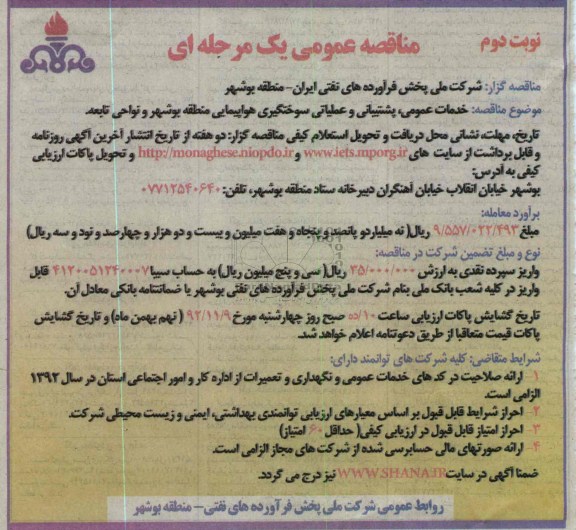 نوبت دوم
مناقصه عمومی یک مرحله ای
مناقصه گزار: شرکت ملی پخش فرآورده های نفتی ایران- منطقه بوشهر
موضوع مناقصه: خدمات عمومی، پشتیبانی و عملیاتی سوختگیری هواپیمایی منطقه بوشهر و نواحی تابعه.
تاریخ، مهلت، نشانی محل دریافت و تحویل استعلام کیفی مناقصه گزار: دو هفته از تاریخ انتشار آخرین آگهی روزنامه
و قابل برداشت از سایت های www.iets.mporg.ir و http://monaghese.niopdo.ir و تحویل پاکات ارزیابی
کیفی به آدرس:
بوشهر خیابان انقلاب خیابان آهنگران دبیرخانه ستاد منطقه بوشهر، تلفن: ۰۷۷۱۲۵۴۰۶۴۰
برآورد معامله:
مبلغ ۹/۵۵۷/۰۲۲/۴۹۳ ریال( نه میلیارد و پانصد و پنجاه و هفت میلیون و بیست و دو هزار و چهارصد و نود و سه ریال)
نوع و مبلغ تضمین شرکت در مناقصه:
واریز سپرده نقدی به ارزش ۳۵/۰۰۰/۰۰۰ ریال( سی و پنج میلیون ریال) به حساب سیبا ۴۱۲۰۰۵۱۲۴۰۰۰۷ قابل
واریز در کلیه شعب بانک ملی بنام شرکت ملی پخش فرآورده های نفتی بوشهر یا ضمانتنامه بانکی معادل آن.
تاریخ گشایش پاکات ارزیابی ساعت ۱۰/ده صبح روز چهارشنبه مورخ ۹۲/۱۱/۹ ( نهم بهمن ماه) و تاریخ گشایش
پاکات قیمت متعاقبا از طریق دعوتنامه اعلام خواهد شد.
شرایط متقاضی: کلیه شرکت های توانمند دارای:
۱- ارائه صلاحیت در کد های خدمات عمومی و نگهداری و تعمیرات از اداره کار و امور اجتماعی استان در سال ۱۳۹۲
الزامی است.
۲- احراز شرایط قابل قبول بر اساس معیارهای ارزیابی توانمندی بهداشتی، ایمنی و زیست محیطی شرکت.
۳- احراز امتیاز قابل قبول در ارزیابی کیفی( حداقل ۶۰ امتیاز)
۴- ارائه صورتهای مالی حسابرسی شده از شرکت های مجاز الزامی است.
ضمنا آگهی در سایت WWW.SHANA.IR نیز درج می گردد.
روابط عمومی شرکت ملی پخش فرآورده های نفتی- منطقه بوشهر